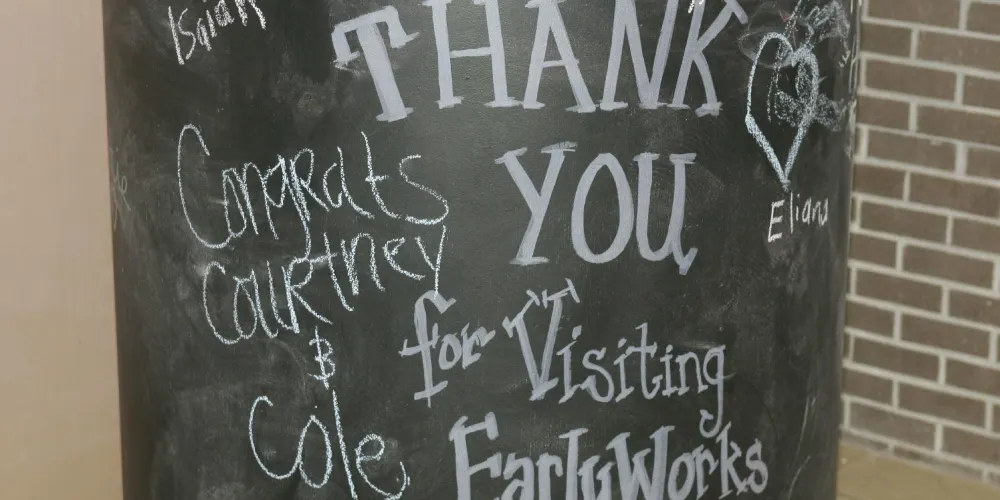 Isaiah
THANK
YOU
for Visiting
EarlyWorks
Congrats
Courtney
&
Cole
Eliana